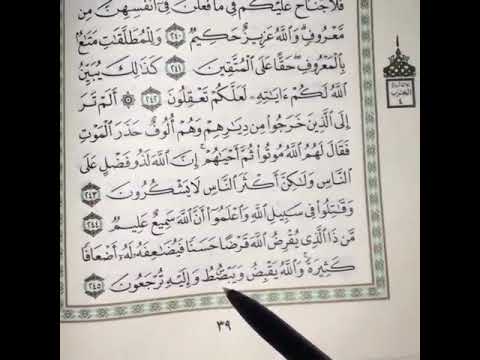 فَلَا جُنَاحَ عَلَيْكُمْ فِي مَا فَعَلْنَ فِي أَنفُسِهِنَّ مِن
مَّعْرُوفٍ وَاللَّهُ عَزِيزٌ حَكِيمٌ ٢٤٠ وَلِلْمُطَلَّقَاتِ مَتَاعٌ
بِالْمَعْرُوفِ حَقًّا عَلَى الْمُتَّقِينَ ٢٤١ كَذَٰلِكَ يُبَيِّنُ
اللَّهُ لَكُمْ ءَايَاتِهِ لَعَلَّكُمْ تَعْقِلُونَ ٢٤٢ ۞ أَلَمْ تَرَ
إِلَى الَّذِينَ خَرَجُوا مِن دِيَارِهِمْ وَهُمْ أُلُوفٌ حَذَرَ الْمَوْتِ
فَقَالَ لَهُمُ اللَّهُ مُوتُوا ثُمَّ أَحْيَاهُمْ إِنَّ اللَّهَ لَذُو فَضْلٍ عَلَى
النَّاسِ وَلَٰكِنَّ أَكْثَرَ النَّاسِ لَا يَشْكُرُونَ ٢٤٣
وَقَاتِلُوا فِي سَبِيلِ اللَّهِ وَاعْلَمُوا أَنَّ اللَّهَ سَمِيعٌ عَلِيمٌ ٢٤٤
مَّن ذَا الَّذِي يُقْرِضُ اللَّهَ قَرْضًا حَسَنًا فَيُضَاعِفَهُ لَهُ أَضْعَافًا
كَثِيرَةً وَاللَّهُ يَقْبِضُ وَيَبْصُۜطُ وَإِلَيْهِ تُرْجَعُونَ ٢٤٥
٣٩